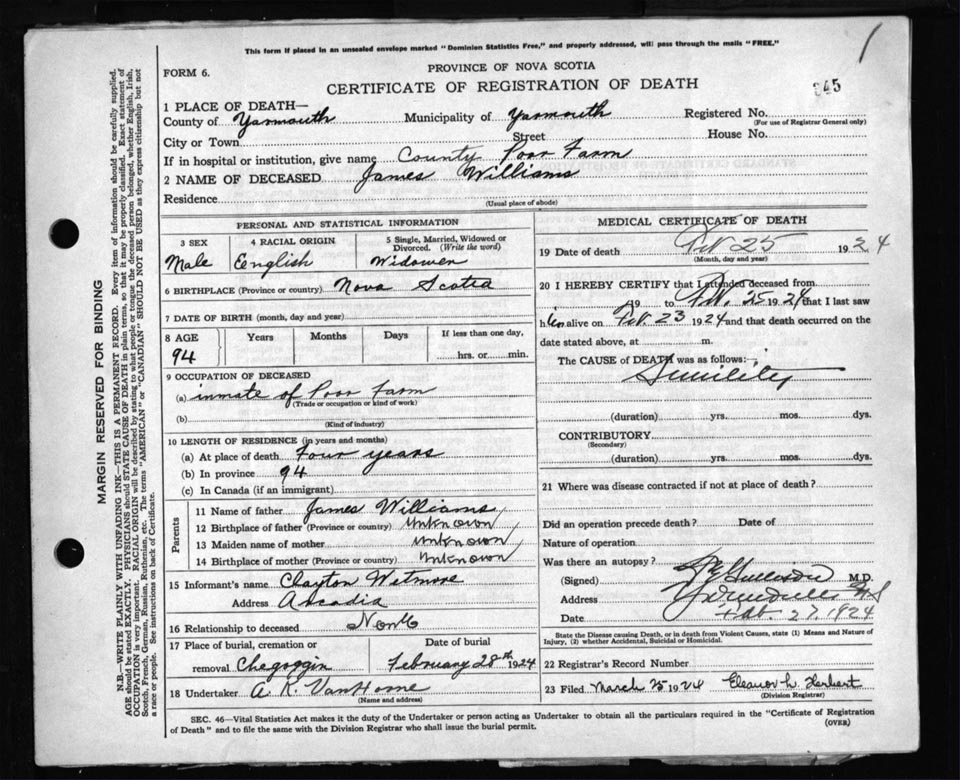 This form if placed in an unsealed envelope marked "Dominion Statistics Free," and properly addressed, will pass through the mails "FREE."
1
FORM 6.
PROVINCE OF NOVA SCOTIA
CERTIFICATE OF REGISTRATION OF DEATH
345
1 PLACE OF DEATH—
County of Yarmouth Municipality of Yarmouth Registered No.
(For use of Registrar General only)
City or Town Street House No.
If in hospital or institution, give name County Poor Farm
2 NAME OF DECEASED James Williams
Residence
(Usual place of abode)
PERSONAL AND STATISTICAL INFORMATION
3 SEX 4 RACIAL ORIGIN 5 Single, Married, Widowed or Divorced. (Write the word)
Male English Widower
6 BIRTHPLACE (Province or country) Nova Scotia
7 DATE OF BIRTH (month, day and year)
8 AGE Years Months Days If less than one day,
94 hrs. or min.
9 OCCUPATION OF DECEASED
(a) inmate of Poor Farm
(Trade or occupation or kind of work)
(b)
(Kind of industry)
10 LENGTH OF RESIDENCE (in years and months)
(a) At place of death Four years
(b) In province 94
(c) In Canada (if an immigrant)
Parents
11 Name of father James Williams
12 Birthplace of father (Province or country) Unknown
13 Maiden name of mother Unknown
14 Birthplace of mother (Province or country) Unknown
15 Informant's name Clayton Wetmore
Address Arcadia
16 Relationship to deceased None
17 Place of burial, cremation or Date of burial
removal Chegoggin February 28th 1924
18 Undertaker A. K. VanHorne
(Name and address)
MEDICAL CERTIFICATE OF DEATH
19 Date of death Feb 25 1924
(Month, day and year)
20 I HEREBY CERTIFY that I attended deceased from
19 to Feb. 25 1924 that I last saw
h im alive on Feb. 23 1924 and that death occurred on the
date stated above, at m.
The CAUSE OF DEATH was as follows:—
Senility
(duration) yrs. mos. dys.
CONTRIBUTORY
(Secondary)
(duration) yrs. mos. dys.
21 Where was disease contracted if not at place of death?
Did an operation precede death? Date of
Nature of operation
Was there an autopsy?
(Signed) M.D.
Address NS
Date Feb. 27. 1924
State the Disease causing Death, or in death from Violent Causes, state (1) Means and Nature of
Injury, (2) whether Accidental, Suicidal or Homicidal.
22 Registrar's Record Number
23 Filed March 25 1924 Eleanor L. Herbert
(Division Registrar)
SEC. 46—Vital Statistics Act makes it the duty of the Undertaker or person acting as Undertaker to obtain all the particulars required in the "Certificate of Registration
of Death" and to file the same with the Division Registrar who shall issue the burial permit.
(OVER)
MARGIN RESERVED FOR BINDING
N.B.—WRITE PLAINLY WITH UNFADING INK—THIS IS A PERMANENT RECORD. Every item of information should be carefully supplied.
AGE should be stated EXACTLY. PHYSICIANS should STATE CAUSE OF DEATH in plain terms, so that it may be properly classified. Exact statement of
OCCUPATION is very important. RACIAL ORIGIN will be described by stating to what people or tongue the deceased person belonged, whether English, Irish,
Scotch, French, German, Russian, Ruthenian, etc. The terms "AMERICAN" or "CANADIAN" SHOULD NOT BE USED as they express citizenship but not
a race or people. See instructions on back of Certificate.